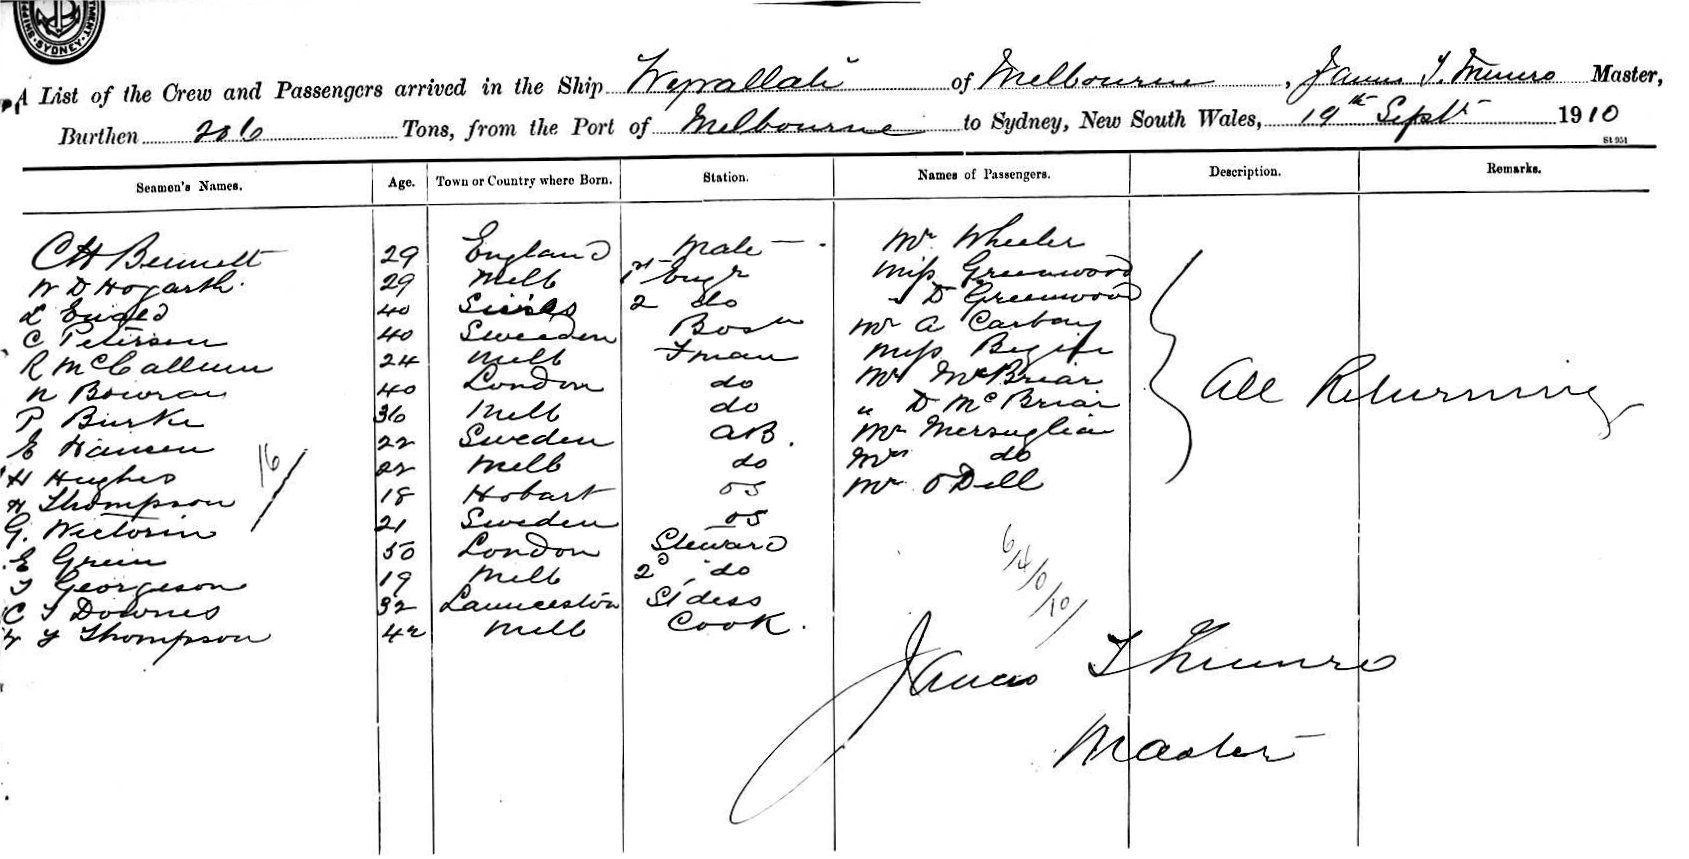 SYDNEY
A List of the Crew and Passengers arrived in the Ship Wyrallah of Melbourne, James T. Munro Master,
Burthen 206 Tons, from the Port of Melbourne to Sydney, New South Wales, 19th Sept 1910
St 954
Seamen's Names. Age. Town or Country where Born. Station. Names of Passengers. Description. Remarks.
C H Bennett 29 England Mate Mr Wheeler
W D Hogarth 29 Melb 1st Engr Miss Greenwood
L 40 2 do " D Greenwood
C Petersen 40 Sweden Bosn Mr A
R McCallum 24 Melb Fman Miss
N Bowran 40 London do Mr McBriar
P Burke 36 Melb do " D McBriar
E Hansen 22 Sweden AB. Mr
H Hughes 22 Melb do Mrs do
H Thompson 18 Hobart OS Mr O'Dell
G. Wictorin 21 Sweden OS
E Green 50 London Steward
T Georgeson 19 Melb 2d " do
C T Downes 32 Launceston Stdess
W J Thompson 42 Melb Cook.
16/
All Returning
6/4/0/10/
James T Munro
Master